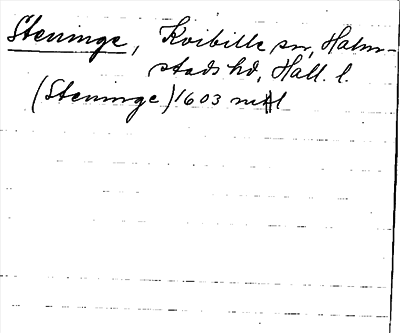 Steninge, Kvibille sn, Halm-
stads hd, Hall. l.
(Steninge) 1603